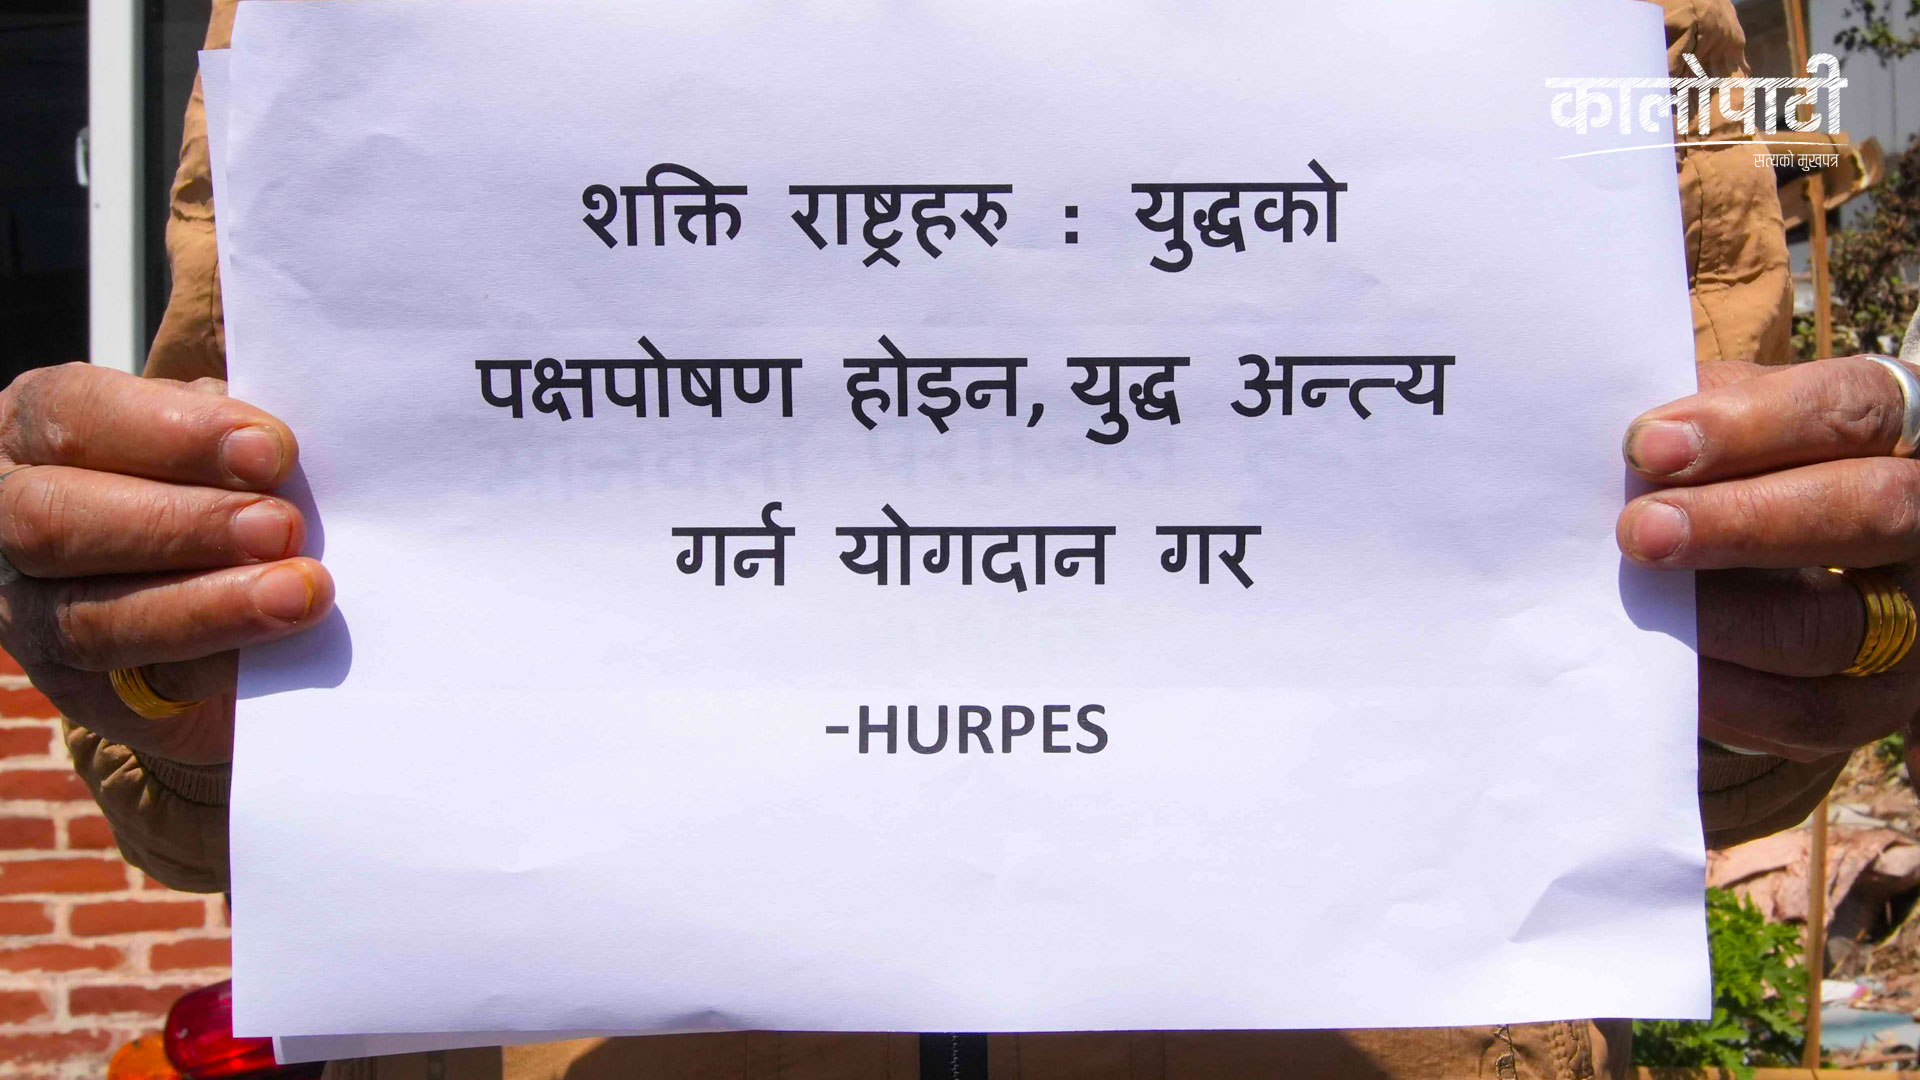 कालोपाटी
सत्यको मुखपत्र
शक्ति राष्ट्रहरु : युद्धको
पक्षपोषण होइन, युद्ध अन्त्य
गर्न योगदान गर
-HURPES